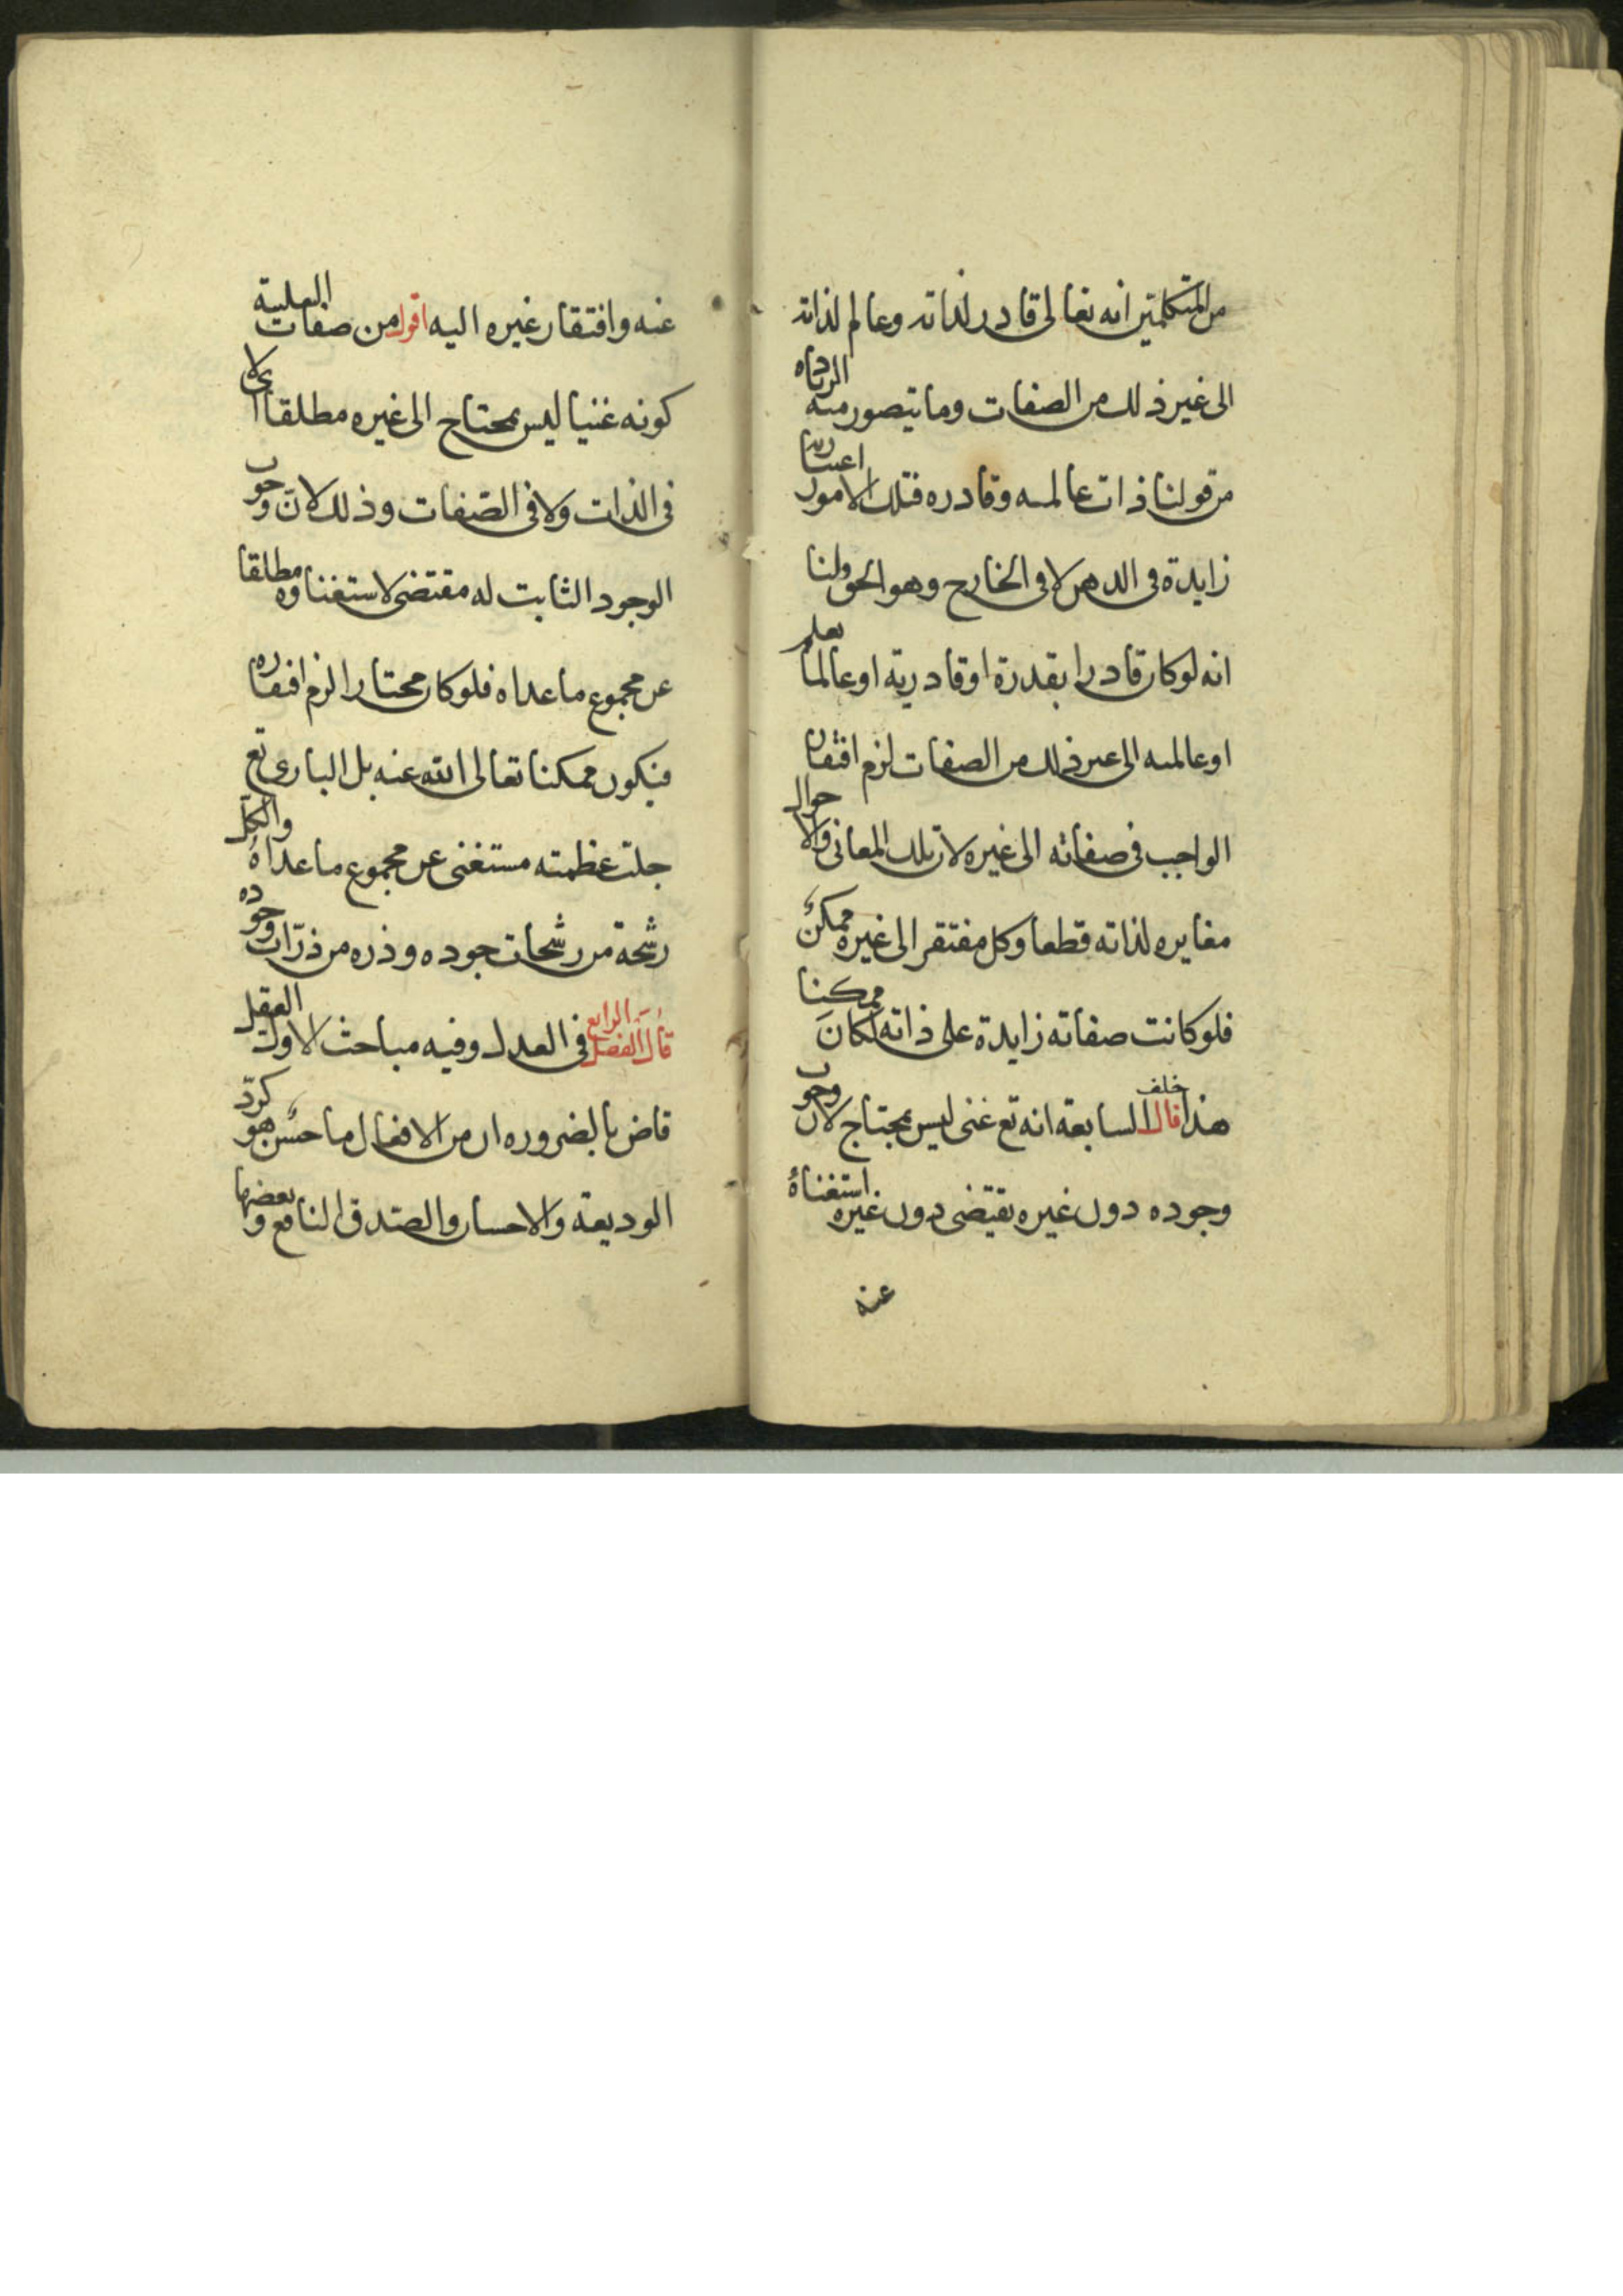 من المتكلمين انه تعالى قادر لذاته وعالم لذاته
الى غير ذلك من الصفات وما يتصور من الزيادة
من قولنا ذات عالمه وقادره فتلك الامور اعتباريه
زايدة في الدهن لا في الخارج وهو الحق ولنا
انه لو كان قادرا بقدرة او قادرية او عالما بعلم
او عالميه الى غير ذلك من الصفات لزم افتقار
الواجب في صفاته الى غيره لان تلك المعاني والاحوال
مغايره لذاته قطعا وكل مفتقر الى غيره ممكن
فلو كانت صفاته زايدة على ذاته لكان ممكنا
هذا خلف قال السابعة انه تع غنى ليس بمحتاج لان وجوب
وجوده دون غيره يقتضى دون غيره استغناؤه
عنه
عنه وافتقار غيره اليه اقول من صفات العلية
كونه غنيا ليس بمحتاج الى غيره مطلقا اى لا
فى الذات ولا فى الصفات وذلك لان وجوب
الوجود الثابت له مقتضى لاستغناؤه مطلقا
عن مجموع ما عداه فلو كان محتاجا لزم افتقاره
فيكون ممكنا تعالى الله عنه بل البارى تع
جلت عظمته مستغنى عن مجموع ما عداه والكل
رشحة من رشحات جوده وذره من ذرات وجوده
قال الفصل الرابع فى العدل وفيه مباحث الاول العقل
قاض بالضروره ان من الافعال ما هو حسن كرد
الوديعة والاحسان والصدق النافع وبعضها